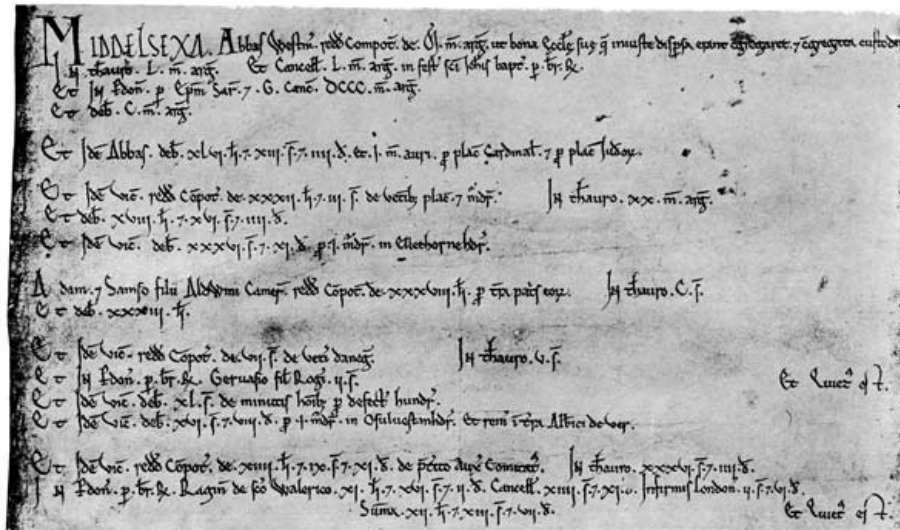 MIDDELSEXA. Abbas Westm̄. redd̄ Compot̄. de. m̄. arg̃. ut bona Eccl̄ę suę q̄ iniuste disp̄sa erant c̄gregaret. ⁊ c̄gregata custodiret
IN th̄auro. L. m̄. arg̃. Et Cancell̄. L. m̄. arg̃. in fest̄ sc̄i Ioh̄is bapt̄. p. br̄. R̄.
Et IN Pdon̄. p Ep̄m Sar̄. ⁊. G. Canc̄. DCCC. m̄. arg̃.
Et deb̄. C. m̄. arg̃.
Et Idē Abbas. deb̄. xlvi. li̅. ⁊. xiii. s̄. ⁊. iiii. d̄. et. i. m̄. auri. p̲ plac̄ Cardinal̄. ⁊ p̲ plac̄ Iudeoꝝ.
Et Idē vic̄. redd̄ Cōpot̄. de. xxxii. li̅. ⁊. iii. s̄. de vetib; plac̄. ⁊ m̄dr̄. IN th̄auro. xx. m̄. arg̃.
Et deb̄. xviii. li̅. ⁊. xvi. s̄. ⁊. iiii. d̄.
Et Idē vic̄. deb̄. xxxvi. s̄. ⁊. xi. d̄. p̲. i. m̄dr̄. in Ellethornehdr̄.
Adam. ⁊ Samso filii Aldwini Camer̄. redd̄ Cōpot̄. de. xxxviii. li̅. p̲ t̄ra pat̄s eoꝝ. IN th̄auro. C. s̄.
Et deb̄. xxxiii. li̅.
Et Idē vic̄. redd̄ Cōpot̄. de. vii. s̄. de vet̄i daneg̃. IN th̄auro. v. s̄.
Et IN Pdon̄. p. br̄. R̄. Geruasio fil̄ Rog̃. ii. s̄. Et Quiet᷒ est.
Et Idē vic̄. deb̄. xl. s̄. de minutis hōib; p̲ defect̄ hundr̄.
Et Idē vic̄. deb̄. xvi. s̄. ⁊. viii. d̄. p̲. i. m̄dr̄. in Osuluestanhdr̄. Et rem̄ ī t̄ra Alb̄ici de ver.
Et Idē vic̄. redd̄ Cōpot̄. de. xiiii. li̅. ⁊. s̄. ⁊. xi. d̄. de Comitat᷒. IN th̄auro. xxxvi. s̄. ⁊. iiii. d̄.
IN Pdon̄. p. br̄. R̄. Ragin̄ de sc̄o Walerico. xi. li̅. ⁊. xvi. s̄. ⁊. ii. d̄. Cancell̄. xiiii. s̄. ⁊. xi. d̄. Infirmis London̄. ii. s̄. ⁊. vi. d̄.
Sūma. xii. li̅. ⁊. xiii. s̄. ⁊. vii. d̄. Et Quiet᷒ est.